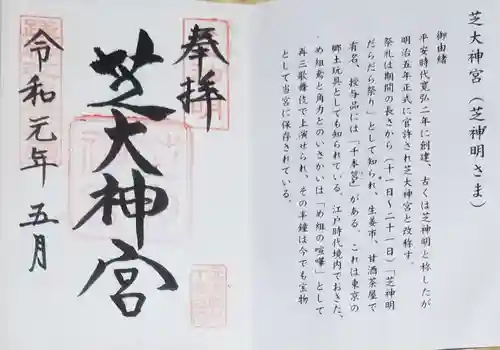 芝大神宮（芝神明さま）
御由緒
平安時代寛弘二年に創建、古くは芝神明と称したが
明治五年正式に官許され芝大神宮と改称す。
祭礼は期間の長さから（十一日～二十一日）「芝神明
だらだら祭り」として知られ、生姜市、甘酒茶屋で
有名。授与品には「千木筥」がある。これは東京の
郷土玩具としても知られている。江戸時代境内でおきた、
め組鳶と角力とのいさかいは「め組の喧嘩」として
再三歌舞伎で上演せられ、その半鐘は今でも宝物
として当宮に保存されている。
奉拝
芝大神宮
令和元年 五月